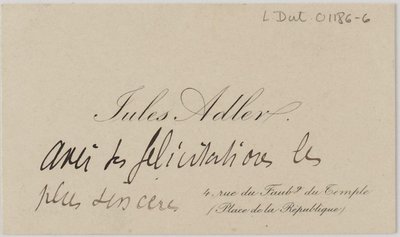 L Dut 01186-6
Jules Adler.
avec ses félicitations les
plus sincères
4, rue du Faubg du Temple
(Place de la République)